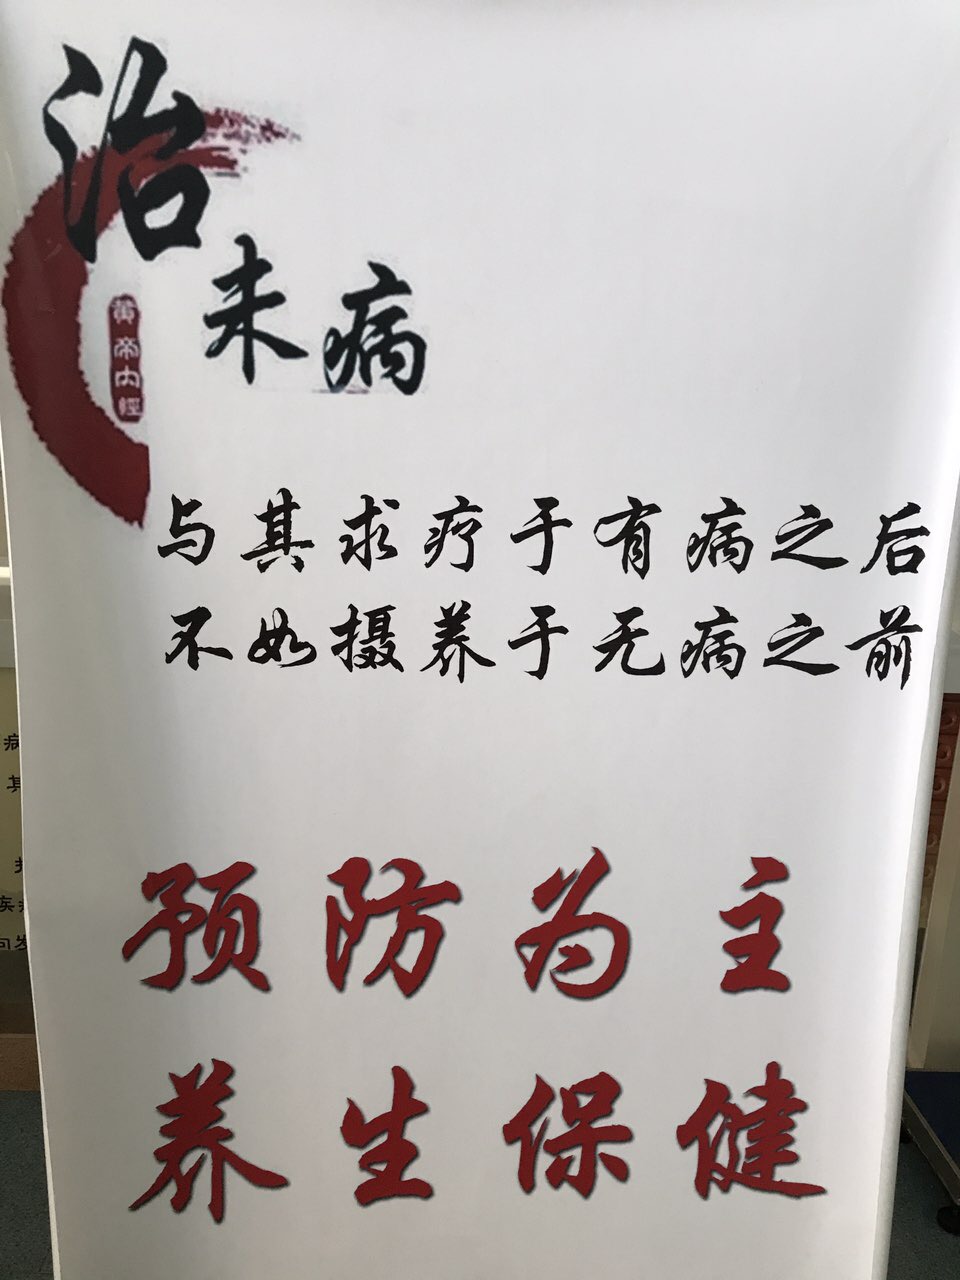 治未病
黄帝内經
与其求疗于有病之后
不如摄养于无病之前
预防为主
养生保健
病
其
疾